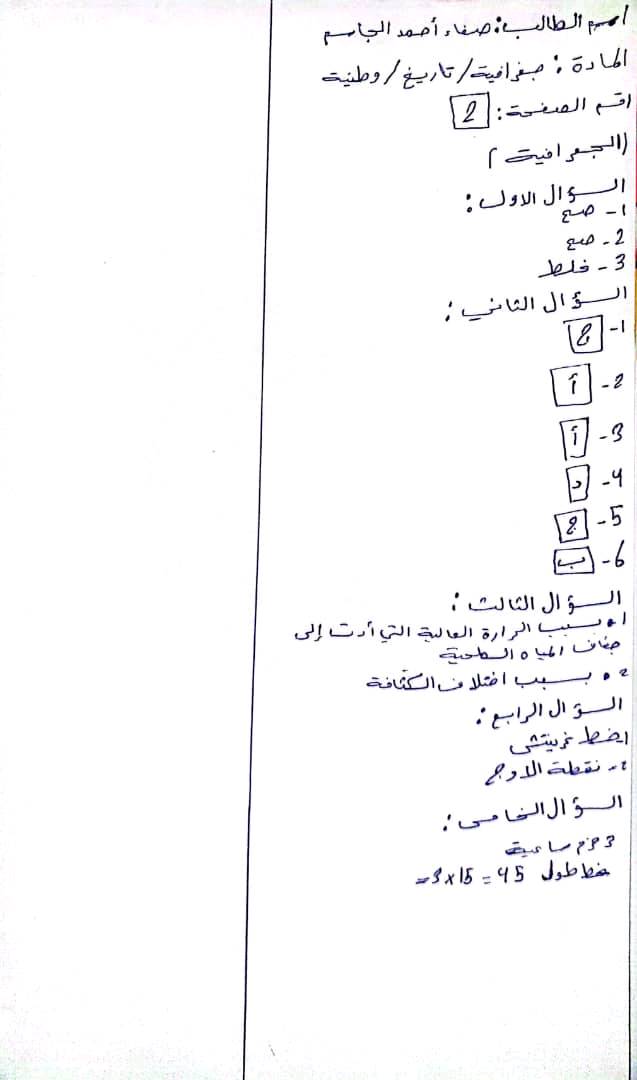 اسم الطالب: صفاء أحمد الجاسم
المادة: جغرافية/تاريخ/وطنية
رقم الصفحة: 2
(الجغرافية)
السؤال الاول:
1- صح
2- صح
3- غلط
السؤال الثاني:
1- ج
2- أ
3- أ
4- د
5- ج
6- ب
السؤال الثالث:
1. بسبب الحرارة العالية التي أدت إلى
جفاف المياه السطحية
2. بسبب اختلاف الكثافة
السؤال الرابع:
1. خط غرينتش
2- نقطة الاوج
السؤال الخامس:
3 حزم ساعية
3×15=45 خط طول